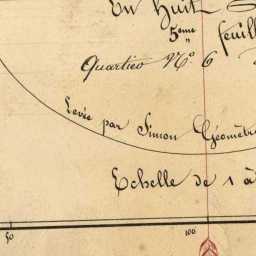 En Huit
5eme feuill
Quartier No 6
Levée par Simon Géomètre
Echelle de 1 à
50 100